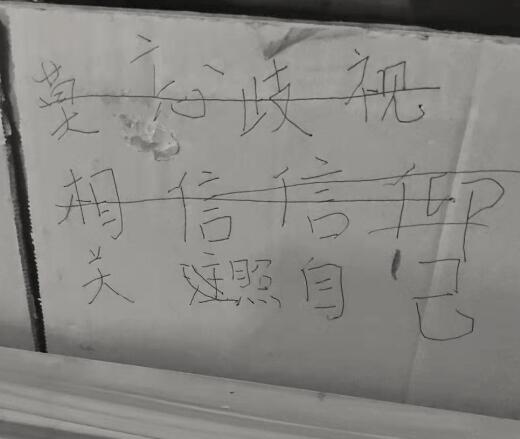 莫忘歧视
相信信仰
关照自己